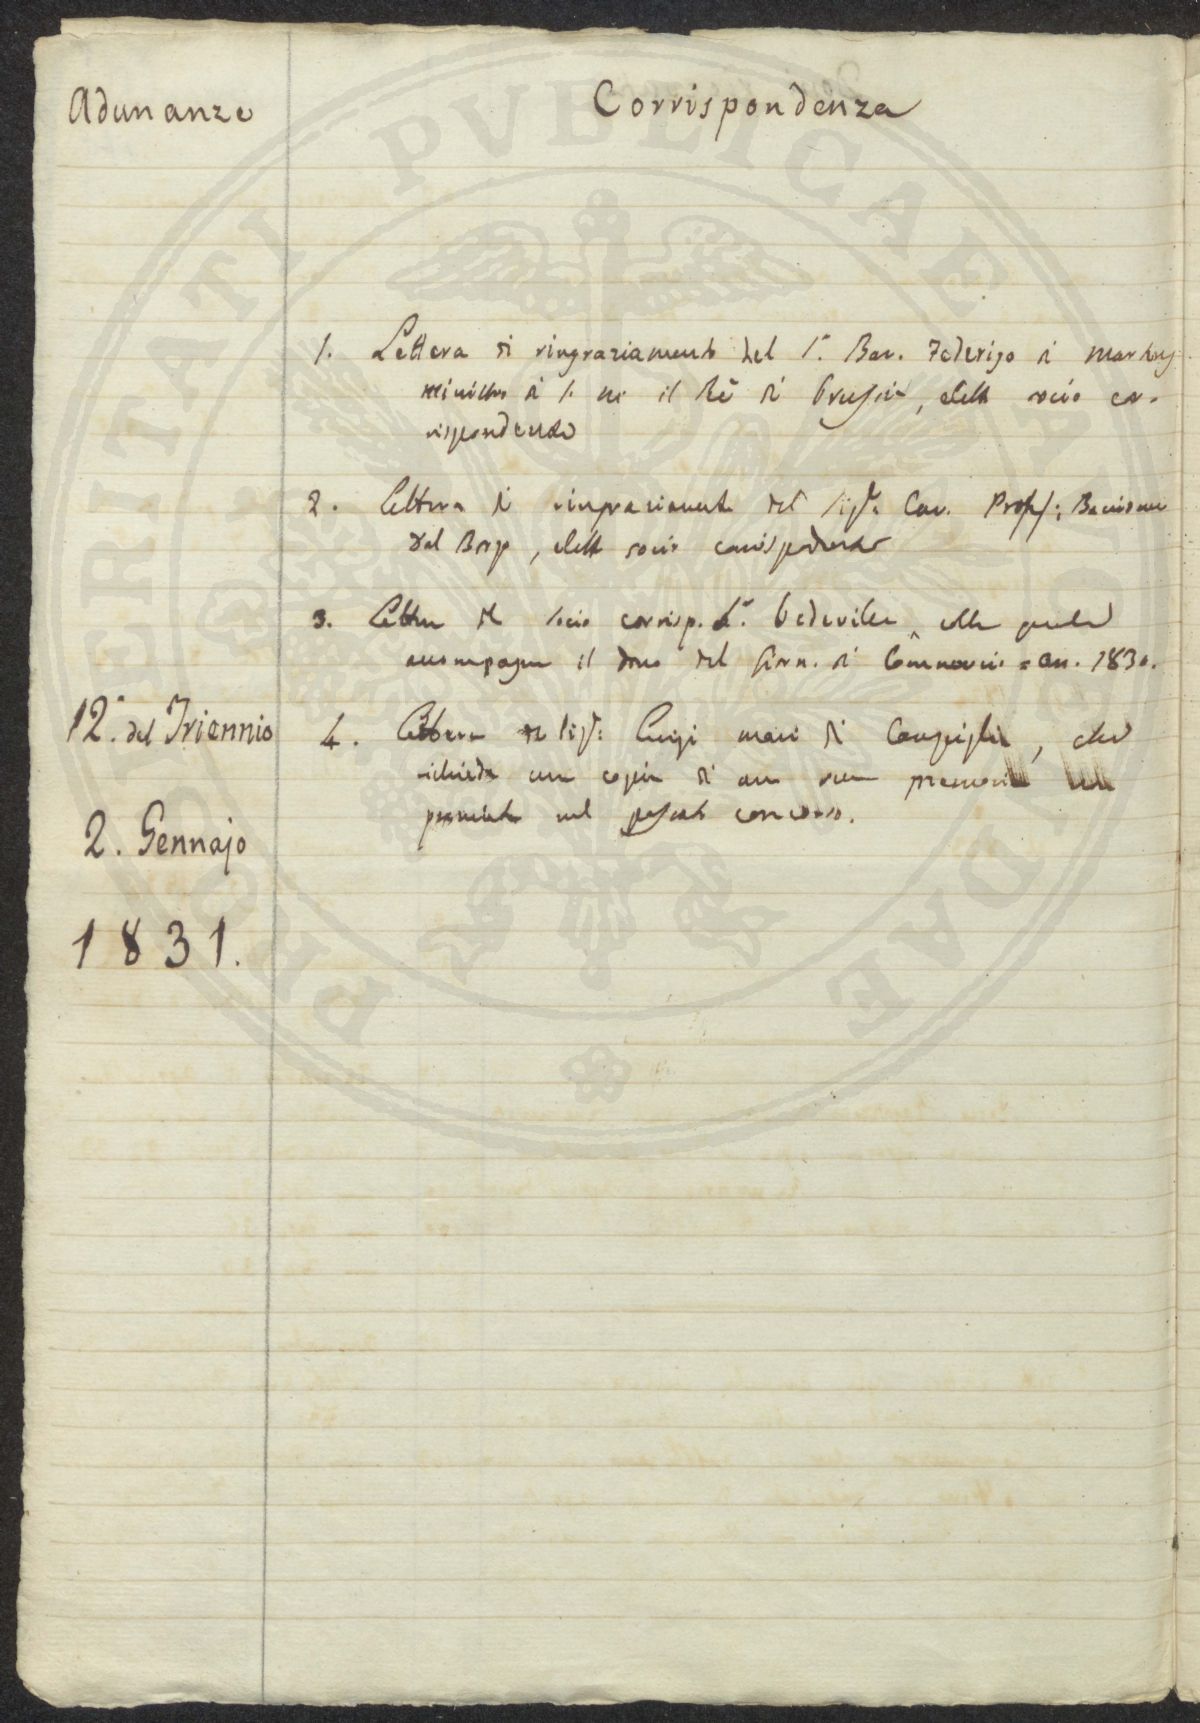 Adunanze
Corrispondenza
1. Lettera di ringraziamento del S.r Bar. Federigo di
ministro di S. M. il Rè di Prussia, eletto socio cor-
rispondente
2. Lettera di ringraziamento del Sig.r Cav. Profess:
dal Borgo, eletto socio corrispondente
3. Lettera del socio corrisp. S.r colla quale
accompagna il dono del Giorn. di Commercio an. 1830.
12.a del Triennio
4. Lettera del Sig.r Luigi di Campiglia, che
richiede una copia di una sua memoria
premiata nel passato concorso.
2. Gennajo
1831.
PROSPERITATI PVBLICAE AVGENDAE